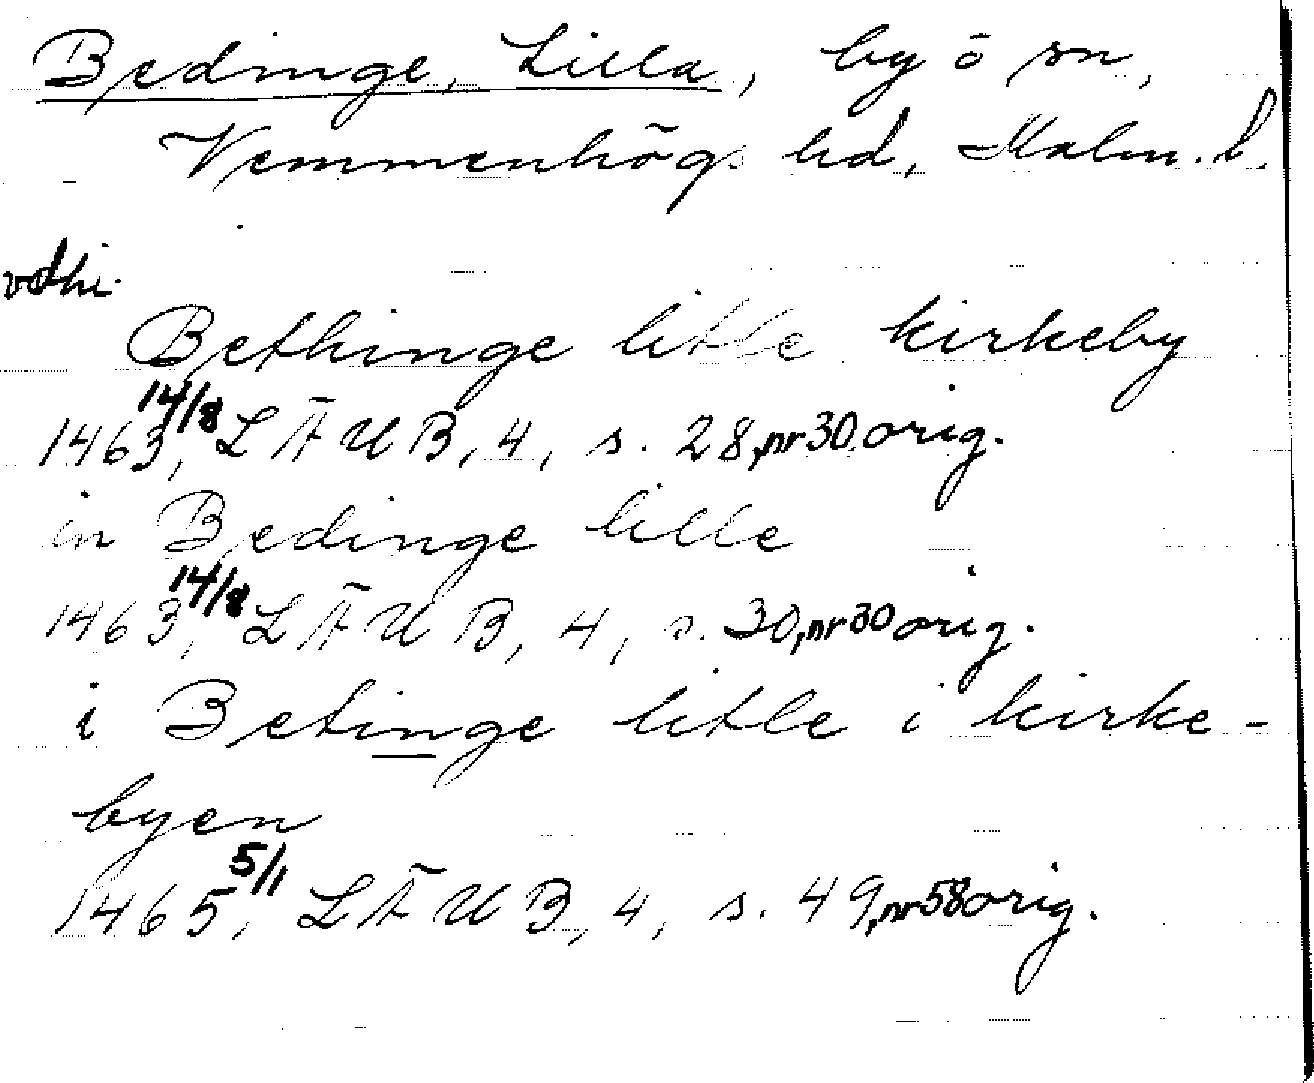 Bedinge, Lilla, by o sn,
Vemmenhögs hd, Malm. l.
Bethinge litle kirkeby
1463 14/8, LÄUB, 4, s. 28, nr 30 orig.
in Bedinge lille
1463 14/8, LÄUB, 4, s. 30, nr 30 orig.
i Betinge litle i kirke-
byen
1465 5/1, LÄUB, 4, s. 49, nr 58 orig.